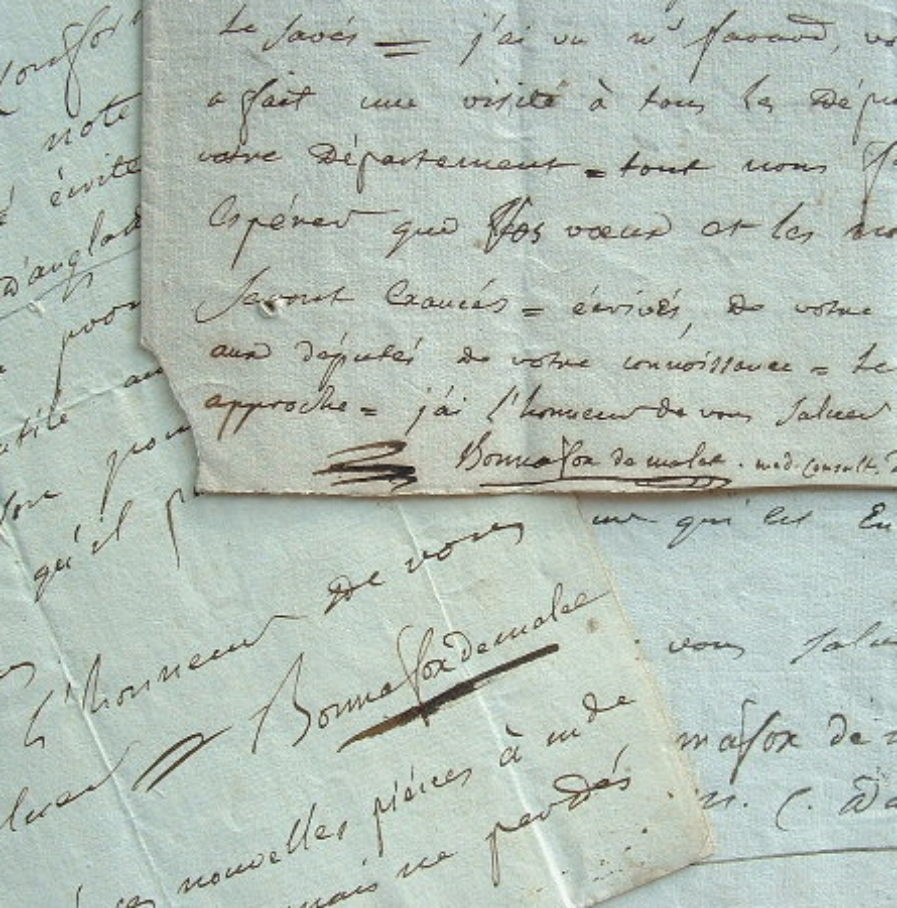 le savés = j'ai vu mr favard, vo
a fait une visite à tous les dépu
votre Département = tout nous f
Espérer que Nos vœux et les
Seront Exaucés = écrivés, de votre
aux députés de votre connoissance = Le
approche = j'ai l'honneur de vous Saluer
Bonnafox de malet. med. Consult.
note
écrite
d'anglade
pour
utile au
pour
qu'il p
l'honneur de vous
luer = Bonnafox demalet
nouvelles piéces à mde
mais ne perdés
qui est En
vous Salue
nafox de m